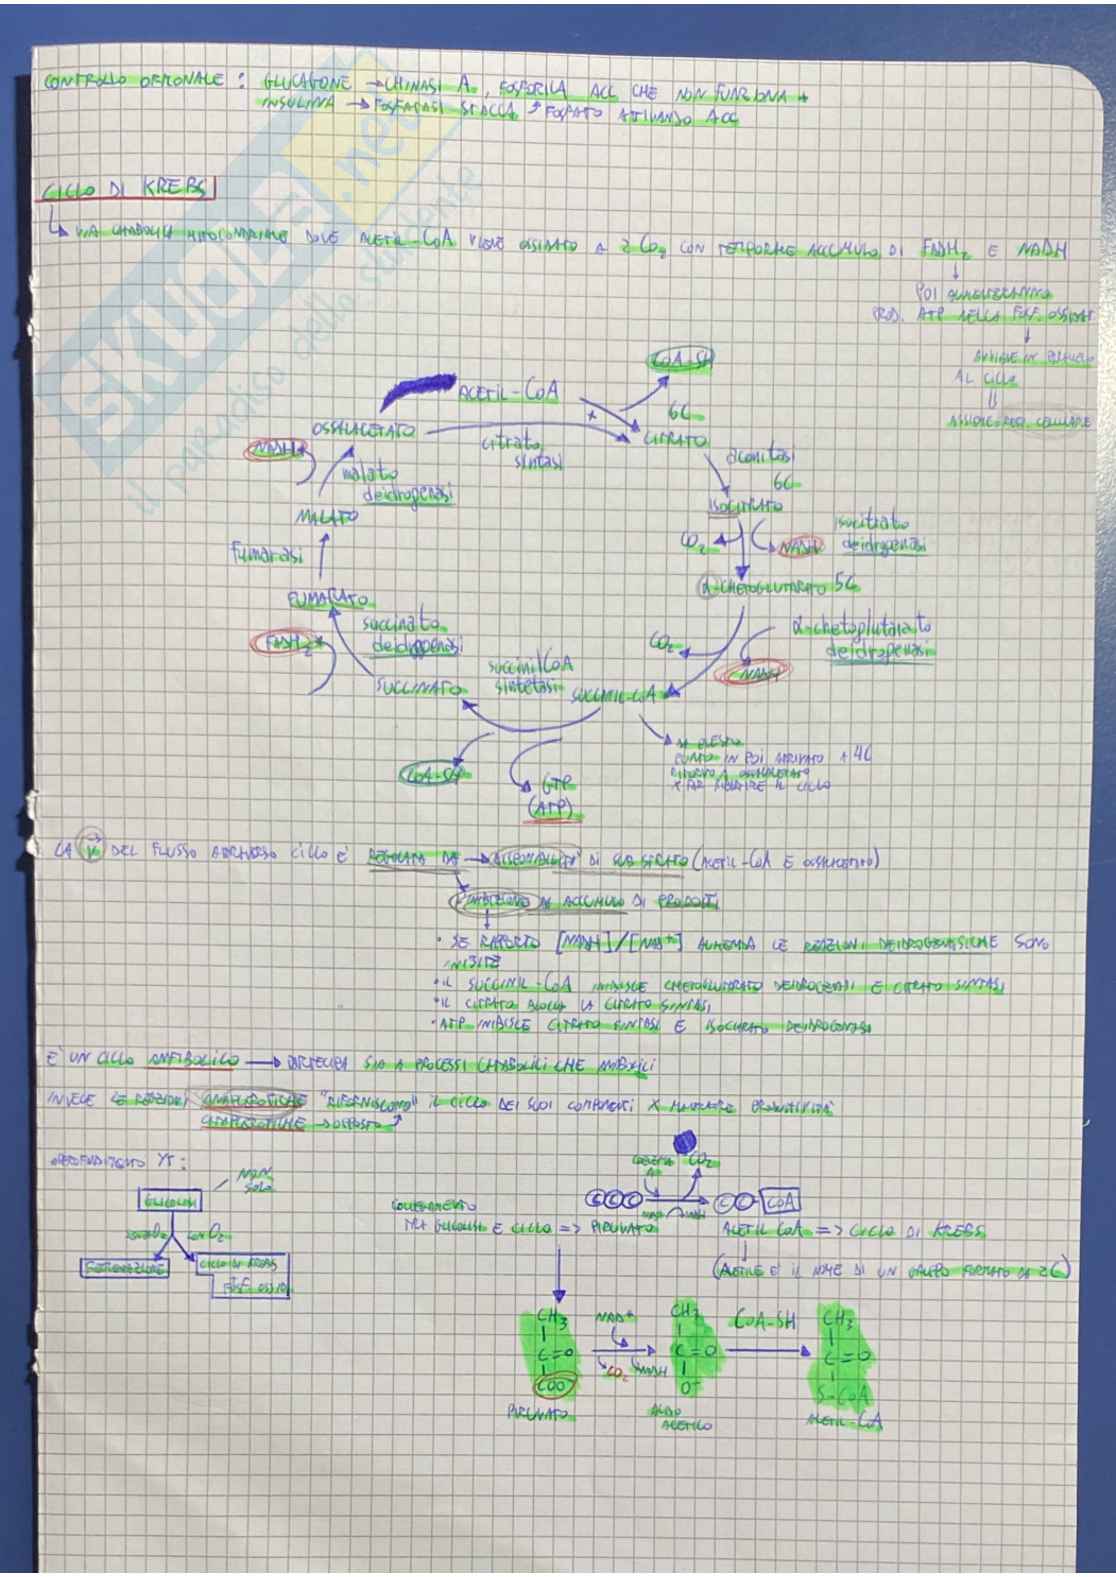 CONTROLLO ORMONALE: GLUCAGONE → CHINASI A, FOSFORILA ACC CHE NON FUNZIONA +
INSULINA → FOSFATASI STACCA ↑ FOSFATO ATTIVANDO ACC
CICLO DI KREBS
VIA CATABOLICA MITOCONDRIALE DOVE ACETIL-CoA VIENE OSSIDATO A 2 CO₂ CON TEMPORANEO ACCUMULO DI FADH₂ E NADH
POI
PROD. ATP NELLA FOSF. OSSIDAT
AVVIENE IN PARALLELO
AL CICLO
CoA-SH
ACETIL-CoA
+
6C
OSSALACETATO
citrato
sintasi
CITRATO
NADH
malato
deidrogenasi
aconitasi
6C
ISOCITRATO
MALATO
CO₂
NADH
isocitrato
deidrogenasi
fumarasi
α-CHETOGLUTARATO 5C
FUMARATO
succinato
deidrogenasi
FADH₂
CO₂
α-chetoglutarato
deidrogenasi
NADH
succinilCoA
sintetasi
SUCCINATO
SUCCINIL-CoA
DA QUESTO
PUNTO IN POI ARRIVATO A 4C
RITORNO A OSSALACETATO
X FAR RIPARTIRE IL CICLO
CoA-SH
GTP
(ATP)
LA V DEL FLUSSO ATTRAVERSO CICLO E' REGOLATA DA → DISPONIBILITA' DI SUBSTRATO (ACETIL-CoA E OSSALACETATO)
INIBIZIONE DA ACCUMULO DI PRODOTTI
• SE RAPPORTO [NADH]/[NAD⁺] AUMENTA LE REAZIONI DEIDROGENASICHE SONO
INIBITE
• IL SUCCINIL-CoA INIBISCE CHETOGLUTARATO DEIDROGENASI E CITRATO SINTASI
• IL CITRATO BLOCCA LA CITRATO SINTASI
• ATP INIBISCE CITRATO SINTASI E ISOCITRATO DEIDROGENASI
E' UN CICLO ANFIBOLICO → PARTECIPA SIA A PROCESSI CATABOLICI CHE ANABOLICI
INVECE LE REAZIONI ANAPLEROTICHE "RIFORNISCONO" IL CICLO DEI SUOI COMPONENTI X
CATAPLEROTICHE → OPPOSTO
NON
SOLO
GLICOLISI
senza O₂
con O₂
FERMENTAZIONE
CICLO DI KREBS
FOSF. OSSID.
COLLEGAMENTO
TRA GLICOLISI E CICLO => PIRUVATO
CO₂
C C C → C C CoA
ACETIL CoA => CICLO DI KREBS
(ACETILE E' IL NOME DI UN GRUPPO FORMATO DA 2C)
CH₃
C=O
COO
PIRUVATO
NAD⁺
CO₂
NADH
CH₃
C=O
O⁻
ACIDO
ACETICO
CoA-SH
CH₃
C=O
S-CoA
ACETIL-CoA
SKUOLA.net
il paradiso dello studente